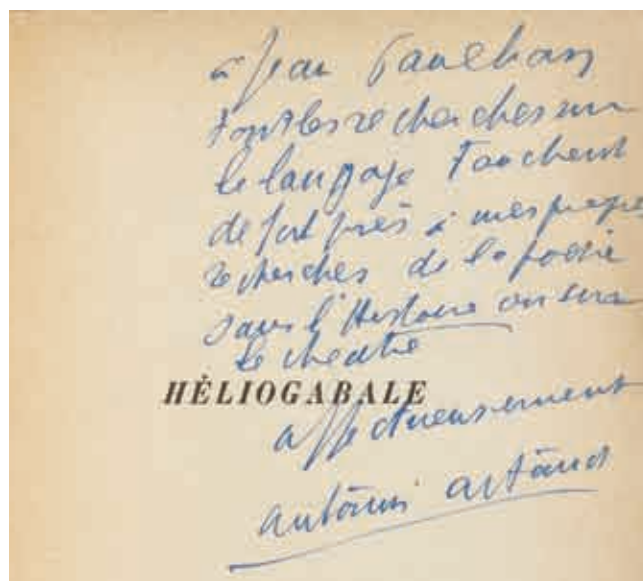 à Jean Paulhan
dont les recherches sur
le langage touchent
de fort près à mes propres
recherches de la poésie
dans l'Histoire ou sur
le théatre
HÉLIOGABALE
affectueusement
antonin artaud